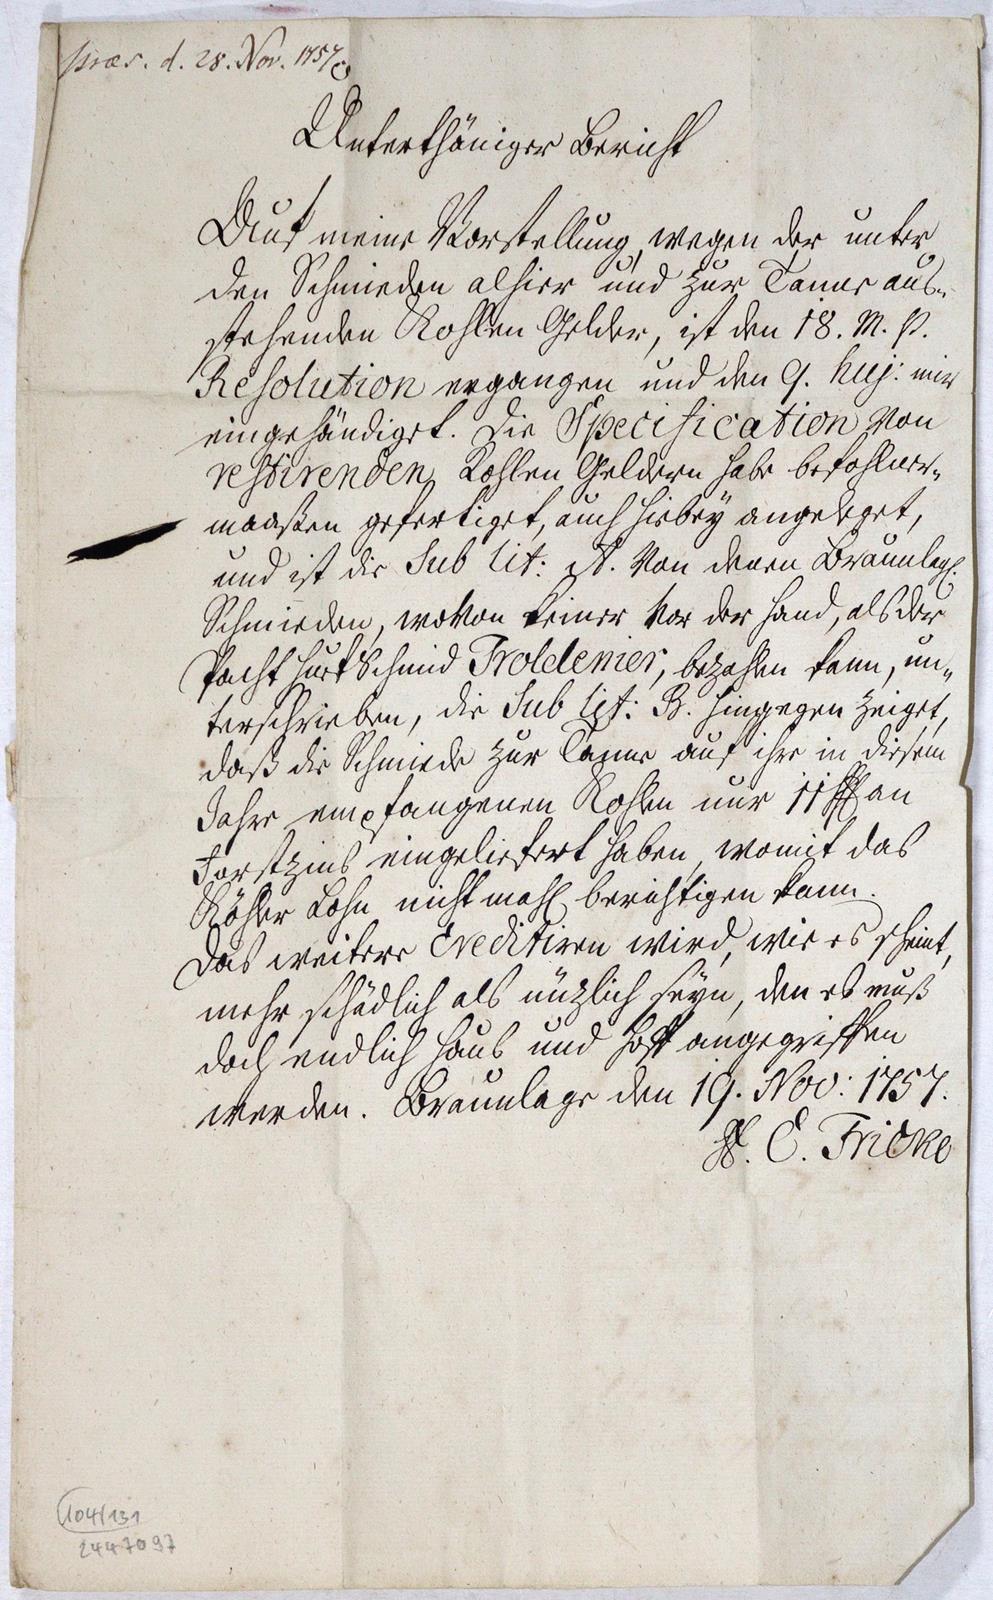 præs. d. 28. Nov. 1757.
Unterthäniger Bericht
Auf meine Vorstellung, wegen der unter
den Schmieden alhier und zur Tanne aus-
stehenden Kohlen Gelder, ist den 18. M. P.
Resolution ergangen und den 9. huj: mir
eingehändiget. Die Specification von
restirenden Kohlen Geldern habe befohlner-
maaßen gefertiget, auch hiebey angeleget,
und ist die Sub Lit: A. von denen Braunlag.
Schmieden, wovon keiner vor der Hand, als der
Pacht Schmid Troldenier, bezahlen kann, un-
terschrieben, die Sub Lit: B. hingegen zeiget,
daß die Schmiede zur Tanne auf ihre in diesem
Jahre empfangenen Kohlen nur 11 an
Forstzins eingeliefert haben, womit das
Köhler Lohn nicht mahl berichtigen kann.
Das weitere Creditiren wird, wie es scheint,
mehr schädlich als nüzlich seyn, den es muß
doch endlich Hauß und Hoff angegriffen
werden. Braunlage den 19. Nov: 1757.
E. Fricke
104/131
2447097